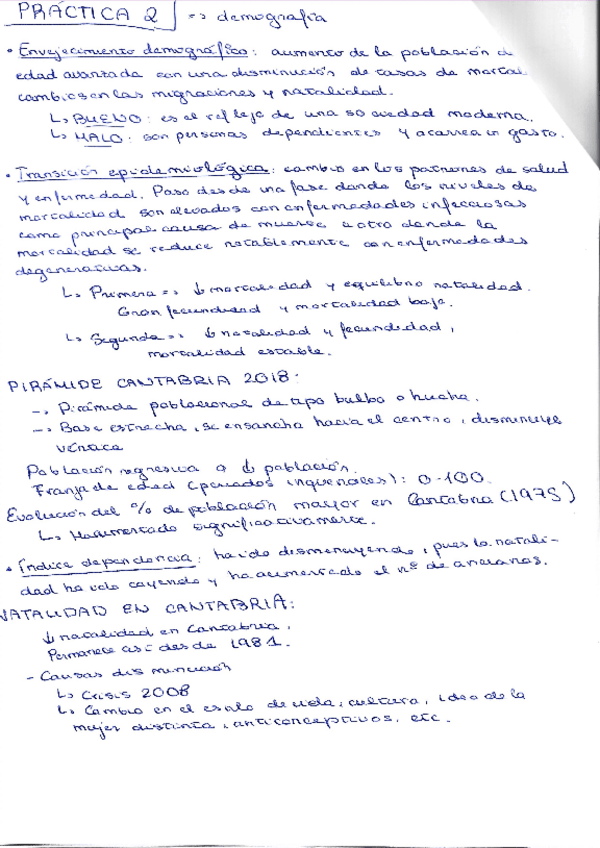 PRÁCTICA 2 => demografía
• Envejecimiento demográfico: aumento de la población d
edad avanzada con una disminución de tasas de mortal
cambios en las migraciones y natalidad.
↳ BUENO: es el reflejo de una sociedad moderna.
↳ MALO: son personas dependientes y acarrean gasto.
• Transición epidemiológica: cambio en los patrones de salud
y enfermedad. Paso desde una fase donde los niveles de
mortalidad son elevados con enfermedades infecciosas
como principal causa de muerte a otro donde la
mortalidad se reduce notablemente con enfermedades
degenerativas.
↳ Primera => ↓ mortalidad y equilibrio natalidad.
Gran fecundidad y mortalidad baja.
↳ Segunda => ↓ natalidad y fecundidad,
mortalidad estable.
PIRÁMIDE CANTABRIA 2018:
-> Pirámide poblacional de tipo bulbo o hucha.
-> Base estrecha, se ensancha hacia el centro, disminuye
vértice
Población regresiva o ↓ población.
Franja de edad (periodos inquenales): 0-100.
Evolución del % de población mayor en Cantabria (1975)
↳ Ha aumentado significativamente.
• Índice dependencia: ha ido disminuyendo, pues la natali-
dad ha ido cayendo y ha aumentado el nº de ancianos.
NATALIDAD EN CANTABRIA:
↓ natalidad en Cantabria.
Permanece así desde 1981.
- Causas disminución
↳ Crisis 2008
↳ Cambio en el estilo de vida, cultura, idea de la
mujer distinta, anticonceptivos, etc.